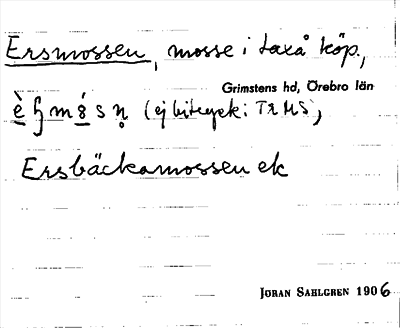 Ersmossen, mosse i Laxå köp.,
Grimstens hd, Örebro län
(ej bitryck:
Ersbäckamossen ek
JÖRAN SAHLGREN 1906